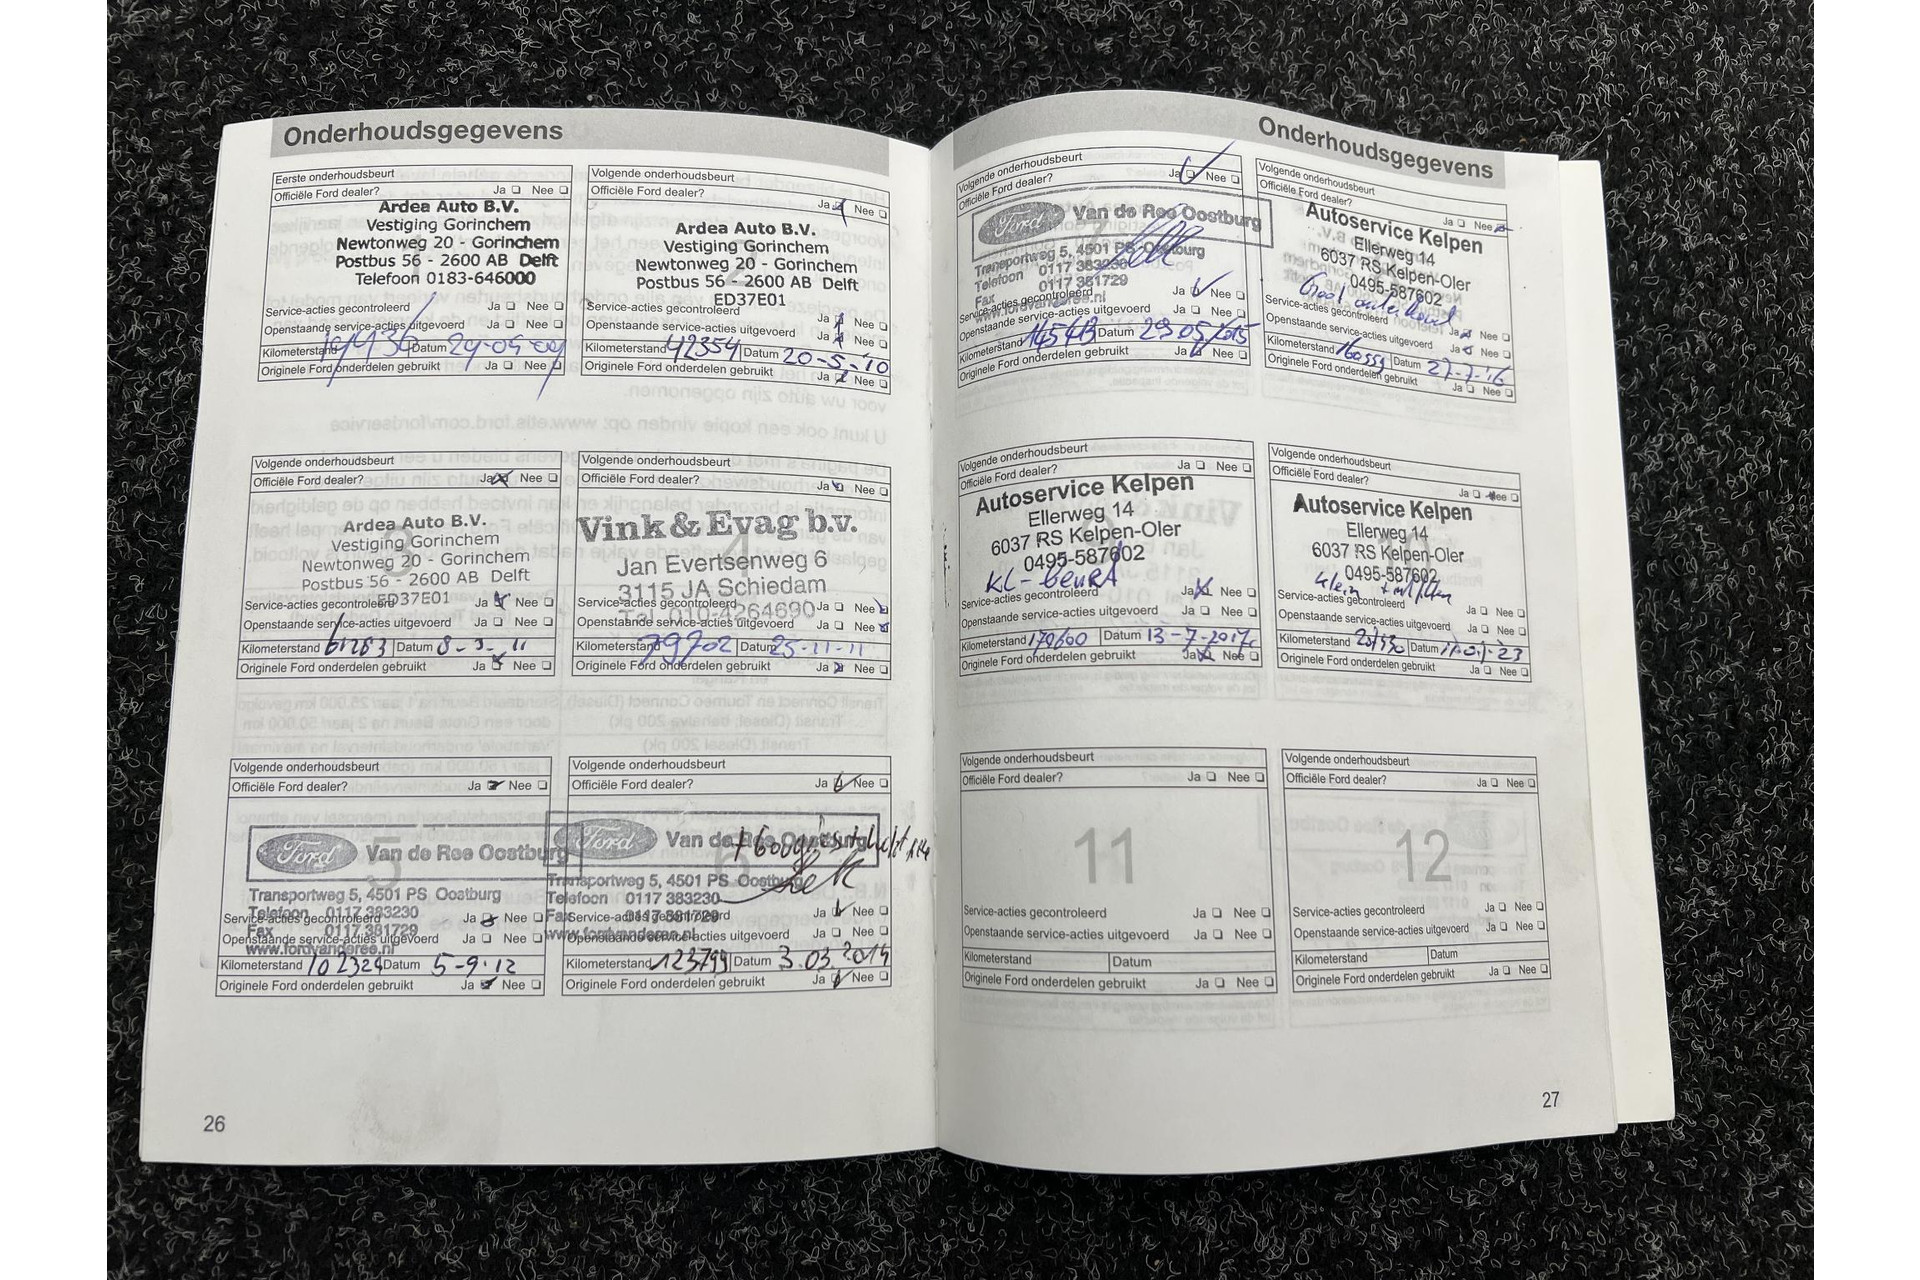 Onderhoudsgegevens
Eerste onderhoudsbeurt
Officiële Ford dealer? Ja Nee
Ardea Auto B.V.
Vestiging Gorinchem
Newtonweg 20 - Gorinchem
Postbus 56 - 2600 AB Delft
Telefoon 0183-646000
Service-acties gecontroleerd Ja Nee
Openstaande service-acties uitgevoerd Ja Nee
Kilometerstand 19936 Datum 29-05-09
Originele Ford onderdelen gebruikt Ja Nee
Volgende onderhoudsbeurt
Officiële Ford dealer? Ja Nee
Ardea Auto B.V.
Vestiging Gorinchem
Newtonweg 20 - Gorinchem
Postbus 56 - 2600 AB Delft
ED37E01
Service-acties gecontroleerd Ja Nee
Openstaande service-acties uitgevoerd Ja Nee
Kilometerstand 42354 Datum 20-5-'10
Originele Ford onderdelen gebruikt Ja Nee
Volgende onderhoudsbeurt
Officiële Ford dealer? Ja Nee
3
Ardea Auto B.V.
Vestiging Gorinchem
Newtonweg 20 - Gorinchem
Postbus 56 - 2600 AB Delft
ED37E01
Service-acties gecontroleerd Ja Nee
Openstaande service-acties uitgevoerd Ja Nee
Kilometerstand 61283 Datum 8-3-11
Originele Ford onderdelen gebruikt Ja Nee
Volgende onderhoudsbeurt
Officiële Ford dealer? Ja Nee
4
Vink & Evag b.v.
Jan Evertsenweg 6
3115 JA Schiedam
Tel. 010-4264690
Service-acties gecontroleerd Ja Nee
Openstaande service-acties uitgevoerd Ja Nee
Kilometerstand 79702 Datum 25-11-11
Originele Ford onderdelen gebruikt Ja Nee
Volgende onderhoudsbeurt
Officiële Ford dealer? Ja Nee
5
Ford Van de Ree Oostburg
Transportweg 5, 4501 PS Oostburg
Telefoon 0117 383230
Fax 0117 381729
www.fordvanderee.nl
Service-acties gecontroleerd Ja Nee
Openstaande service-acties uitgevoerd Ja Nee
Kilometerstand 102324 Datum 5-9-12
Originele Ford onderdelen gebruikt Ja Nee
Volgende onderhoudsbeurt
Officiële Ford dealer? Ja Nee
6
Ford Van de Ree Oostburg
Transportweg 5, 4501 PS Oostburg
Telefoon 0117 383230
Fax 0117 381729
www.fordvanderee.nl
Service-acties gecontroleerd Ja Nee
Openstaande service-acties uitgevoerd Ja Nee
Kilometerstand 123799 Datum 3.03.2014
Originele Ford onderdelen gebruikt Ja Nee
26
Onderhoudsgegevens
Volgende onderhoudsbeurt
Officiële Ford dealer? Ja Nee
Ford Van de Ree Oostburg
Transportweg 5, 4501 PS Oostburg
Telefoon 0117 383230
Fax 0117 381729
www.fordvanderee.nl
Service-acties gecontroleerd Ja Nee
Openstaande service-acties uitgevoerd Ja Nee
Kilometerstand 145413 Datum 29 05 2015
Originele Ford onderdelen gebruikt Ja Nee
Volgende onderhoudsbeurt
Officiële Ford dealer? Ja Nee
Autoservice Kelpen
Ellerweg 14
6037 RS Kelpen-Oler
0495-587602
Groot onderhoud
Service-acties gecontroleerd Ja Nee
Openstaande service-acties uitgevoerd Ja Nee
Kilometerstand 160559 Datum 27-7-'16
Originele Ford onderdelen gebruikt Ja Nee
Volgende onderhoudsbeurt
Officiële Ford dealer? Ja Nee
Autoservice Kelpen
Ellerweg 14
6037 RS Kelpen-Oler
0495-587602
KL-beurt
Service-acties gecontroleerd Ja Nee
Openstaande service-acties uitgevoerd Ja Nee
Kilometerstand 170600 Datum 13-7-2017
Originele Ford onderdelen gebruikt Ja Nee
Volgende onderhoudsbeurt
Officiële Ford dealer? Ja Nee
Autoservice Kelpen
Ellerweg 14
6037 RS Kelpen-Oler
0495-587602
klein
Service-acties gecontroleerd Ja Nee
Openstaande service-acties uitgevoerd Ja Nee
Kilometerstand Datum
Originele Ford onderdelen gebruikt Ja Nee
Volgende onderhoudsbeurt
Officiële Ford dealer? Ja Nee
11
Service-acties gecontroleerd Ja Nee
Openstaande service-acties uitgevoerd Ja Nee
Kilometerstand Datum
Originele Ford onderdelen gebruikt Ja Nee
Volgende onderhoudsbeurt
Officiële Ford dealer? Ja Nee
12
Service-acties gecontroleerd Ja Nee
Openstaande service-acties uitgevoerd Ja Nee
Kilometerstand Datum
Originele Ford onderdelen gebruikt Ja Nee
27